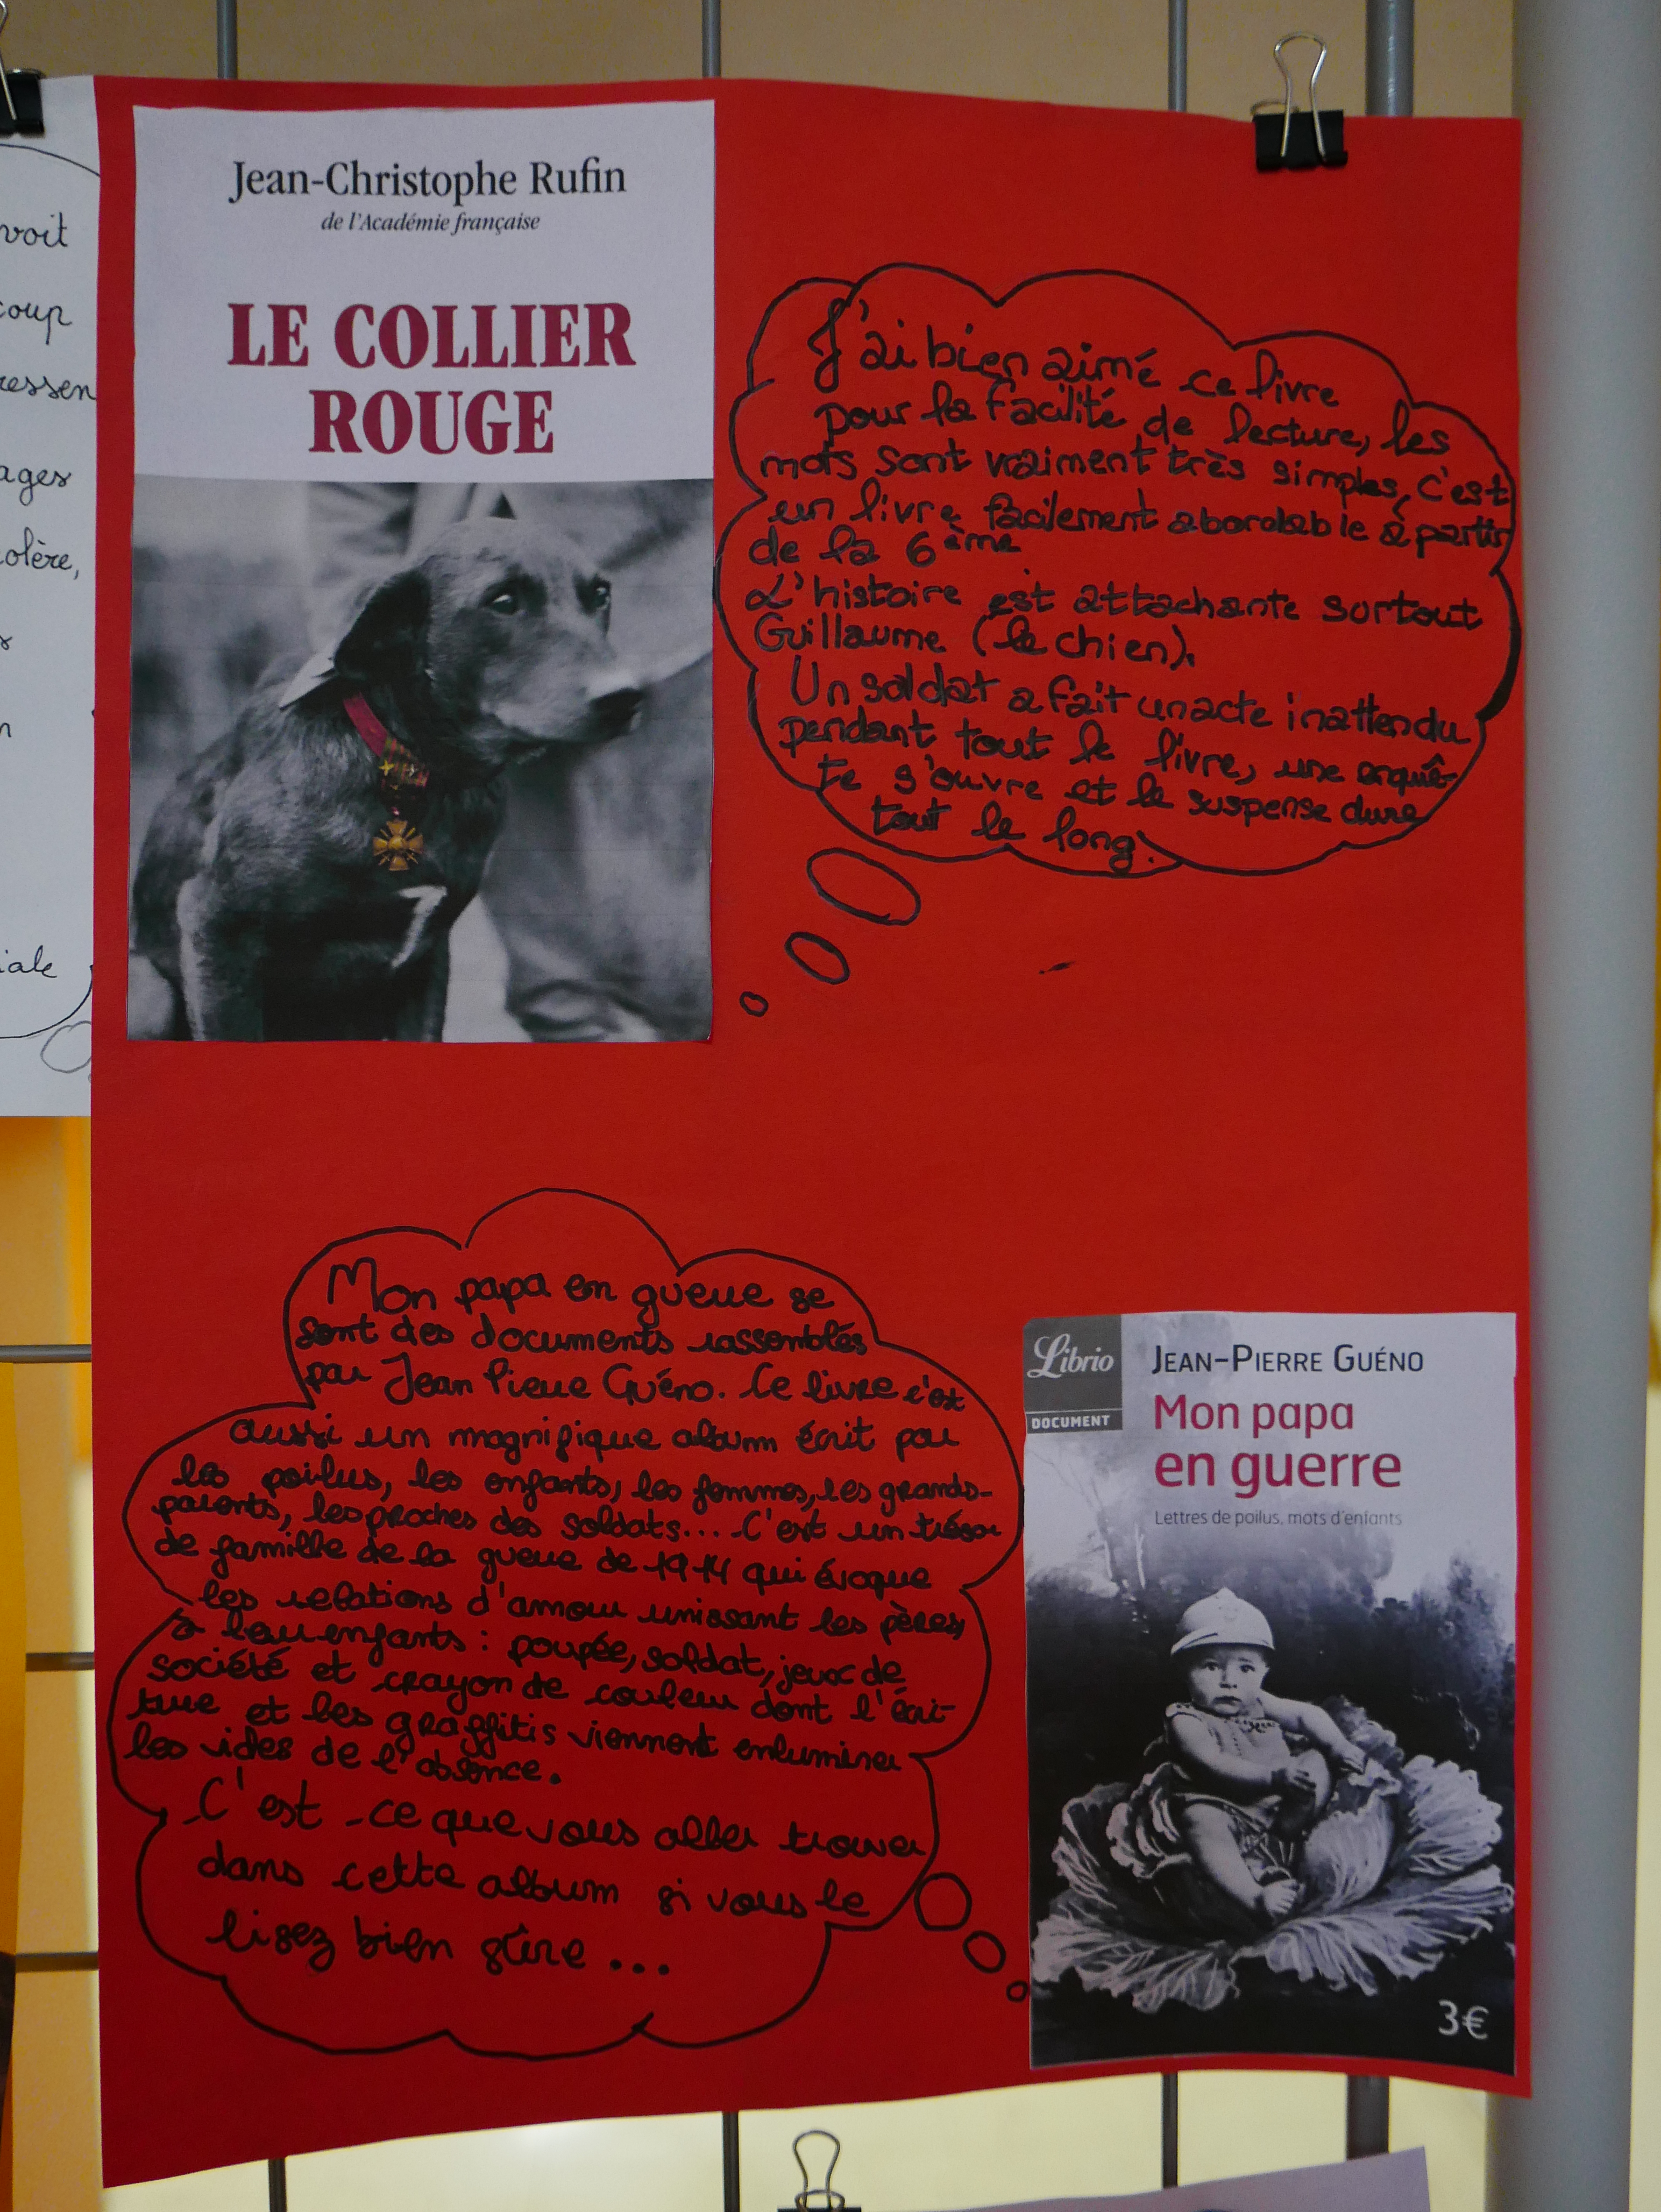 voit
coup
ressen
ages
olère,
iale
Jean-Christophe Rufin
de l'Académie française
LE COLLIER
ROUGE
J'ai bien aimé ce livre
pour la facilité de lecture, les
mots sont vraiment très simples, c'est
un livre facilement abordable à partir
de la 6ème
L'histoire est attachante surtout
Guillaume (le chien).
Un soldat a fait un acte inattendu
pendant tout le livre, une enquê-
te s'ouvre et le suspense dure
tout le long.
Mon papa en guerre se
sont des documents rassemblés
par Jean Pierre Guéno. Ce livre c'est
aussi un magnifique album écrit par
les poilus, les enfants, les femmes, les grands-
parents, les proches des soldats.... C'est un trésor
de famille de la guerre de 1914 qui évoque
les relations d'amour unissant les pères
à leur enfants : poupée, soldat, jeux de
société et crayon de couleur dont l'écri-
ture et les graffitis viennent enluminer
les vides de l'absence.
C'est ce que vous aller trouver
dans cette album si vous le
lisez bien sûre ...
Librio
DOCUMENT
JEAN-PIERRE GUÉNO
Mon papa
en guerre
Lettres de poilus, mots d'enfants
3€